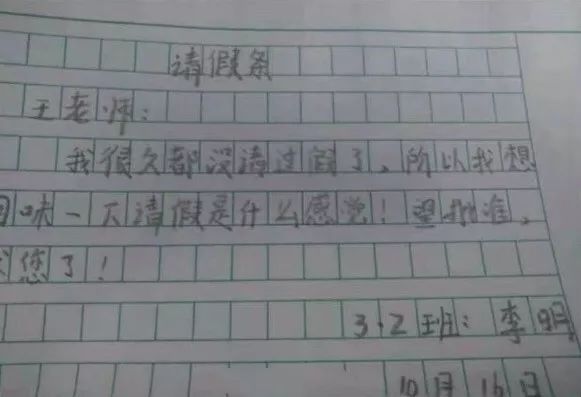 请假条
王老师:
我很久都没请过假了,所以我想
回味一下请假是什么感觉!望批准,
您了!
3.2班:李明
10月16日